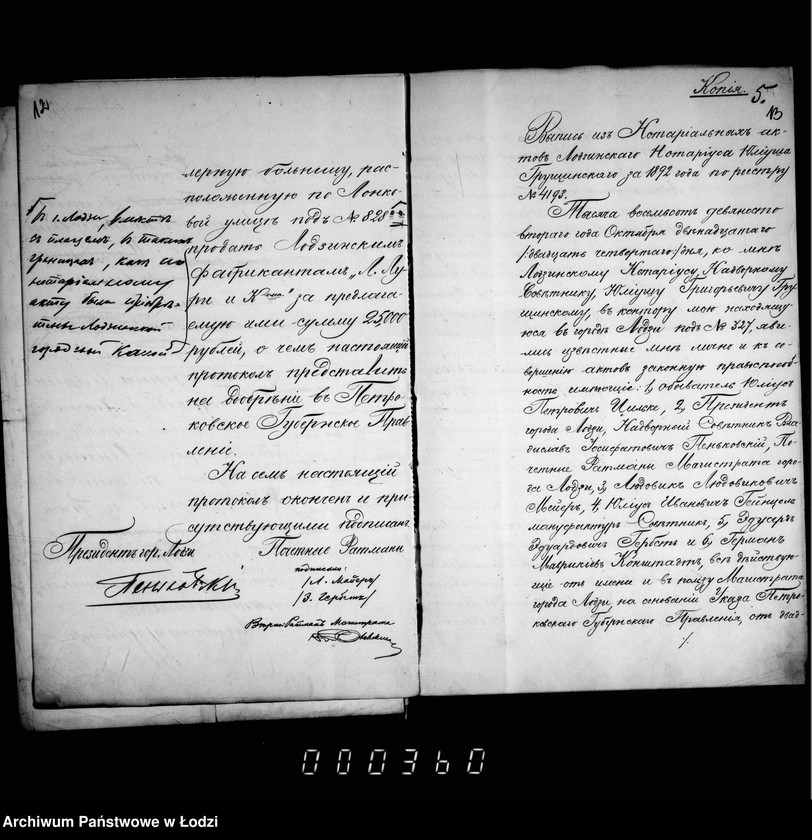 12
лерную больницу, рас-
положенную по Лонко-
вой улицѣ подъ № 828
продать Лодзинскимъ
фабрикантамъ „Л. Лу-
ри и К" за предлага-
емую ими сумму 25000
рублей, о чемъ настоящій
протоколъ представить
на одобрѣніе въ Петро-
ковское Губернское Прав-
леніе.
На семъ настоящій
протоколъ оконченъ и при-
сутствующими подписанъ
въ г. Лодзи, вмѣстѣ
съ плацемъ, въ такихъ
границахъ, какъ
нотаріальному
акту были
Лодзинской
городской Кассой
Президентъ гор. Лодзи
Пеньковскій
Почетные Ратманы
подписали:
/Л. Мейеръ/
/Э. Гербстъ/
Ратманъ Магистрата
Копія.
5.
13
Выпись изъ Нотаріальныхъ ак-
товъ Лодзинскаго Нотаріуса Юліуша
Грущинскаго за 1892 года по реестру
№ 4193.
Тысяча восемьсотъ девяносто
второго года Октября двѣнадцатаго
/двадцать четвертаго/ дня, ко мнѣ
Лодзинскому Нотаріусу, Надворному
Совѣтнику, Юліушу Григорьевичу Гру-
щинскому, въ контору мою находящу-
юся въ городѣ Лодзи подъ № 327, яви-
лись извѣстные мнѣ лично и къ со-
вершенію актовъ законную правоспособ-
ность имѣющіе: 1, обыватель Юліусъ
Петровичъ 2, Президентъ
города Лодзи, Надворный Совѣтникъ Вла-
диславъ Іосифатовичъ Пеньковскій, По-
четные Ратманы Магистрата горо-
да Лодзи, 3, Людовикъ Людовиковичъ
Мейеръ, 4, Юліусъ Ивановичъ Гейнцель
мануфактуръ-Совѣтникъ, 5, Эдуардъ
Эдуардовичъ Гербстъ и 6, Германъ
Маврикіевъ Конштатъ, всѣ дѣйствую-
щіе отъ имени и въ пользу Магистрата
города Лодзи, на основаніи Указа Петро-
ковскаго Губернскаго Правленія, отъ двад-
./.
000360
Archiwum Państwowe w Łodzi